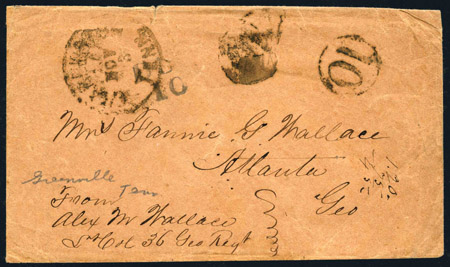 NOV
10
10
Mrs Fannie G. Wallace
Atlanta
Geo
Greenville
Tenn
From
Alex M Wallace
Lt Col 36 Geo Regt